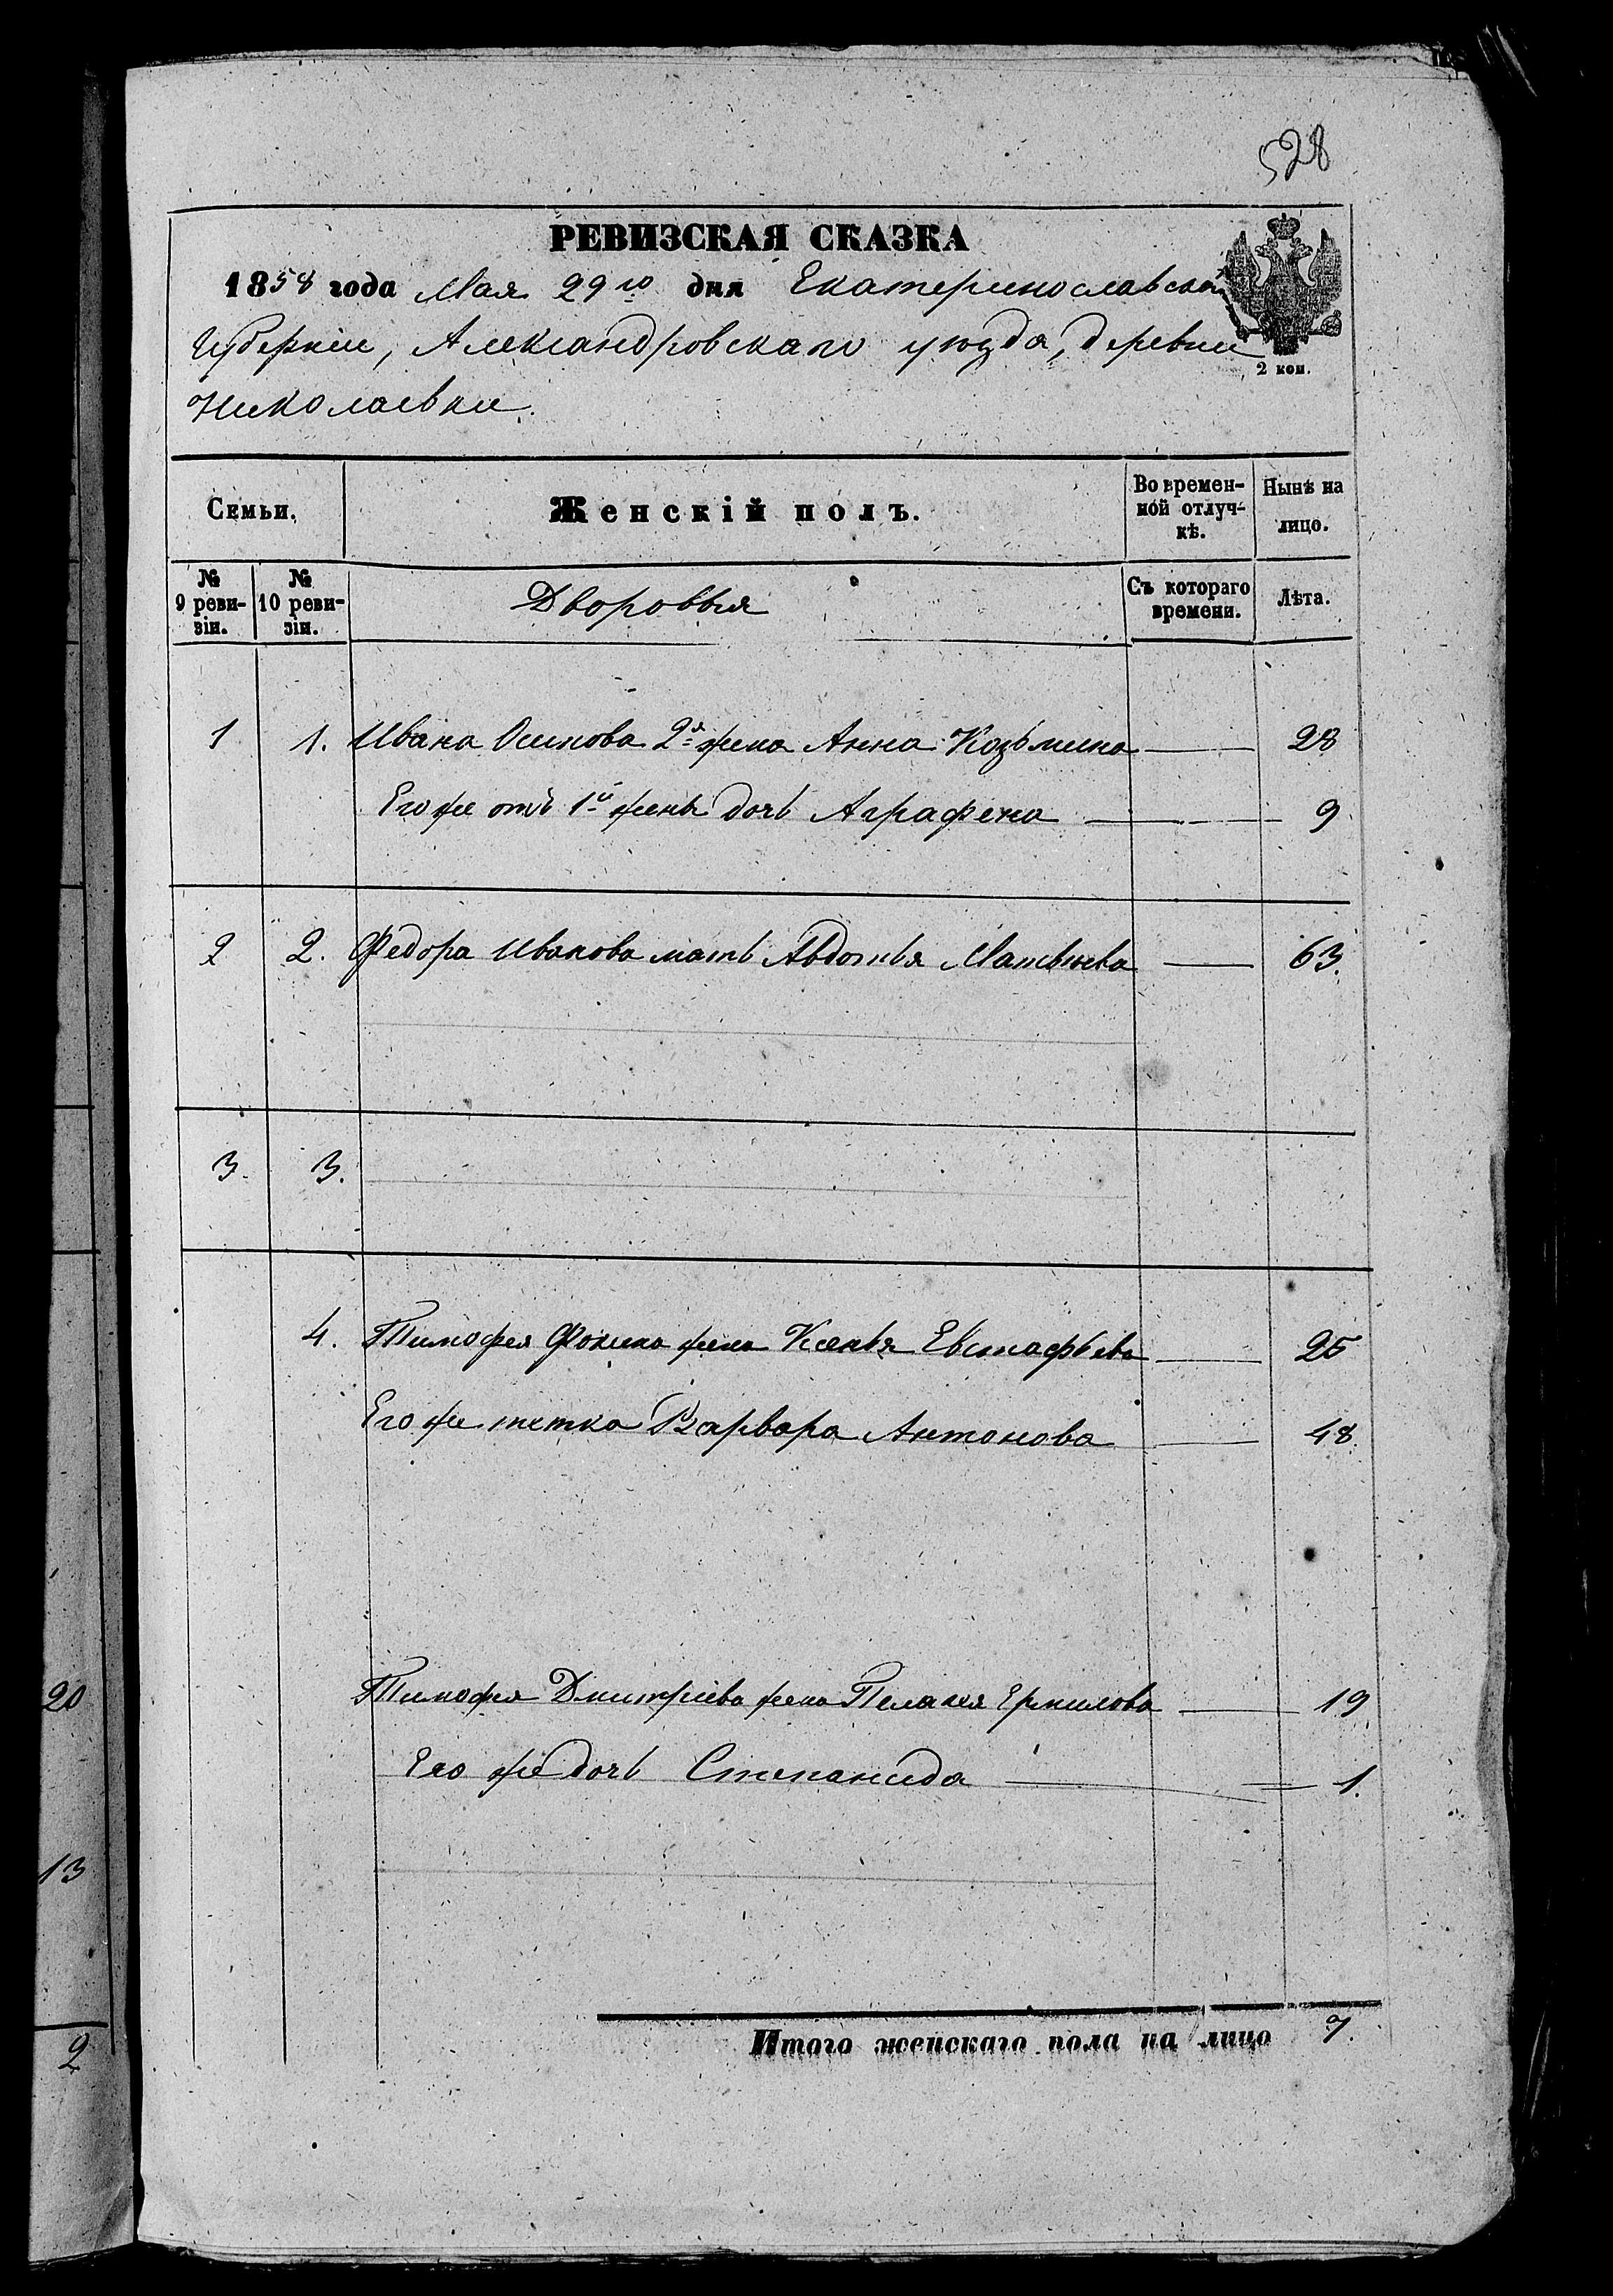 528
РЕВИЗСКАЯ СКАЗКА
1858 года Мая 29го дня Екатеринославской
Губерніи, Александровскаго уѣзда, деревни
2 коп.
Николаевки.
Семьи. Женскій полъ. Во времен-ной отлуч-кѣ. Нынѣ на лицо.
№ 9 реви-зіи. № 10 реви-зіи. Дворовыя Съ котораго времени. Лѣта.
1 1. Ивана Осипова 2я жена Анна Козьмина 28
Его же отъ 1й жены дочь Аграфена 9
2 2. Федора Иванова мать Авдотья Матвѣева 63.
3. 3.
4. Тимофея Фокина жена Ксенья Евстафьева 25
Его же тетка Варвара Антонова 48.
Тимофея Дмитріева жена Пелагея Ермилова 19
Его же дочь Степанида 1.
Итого женскаго пола на лицо 7.
20
13
2